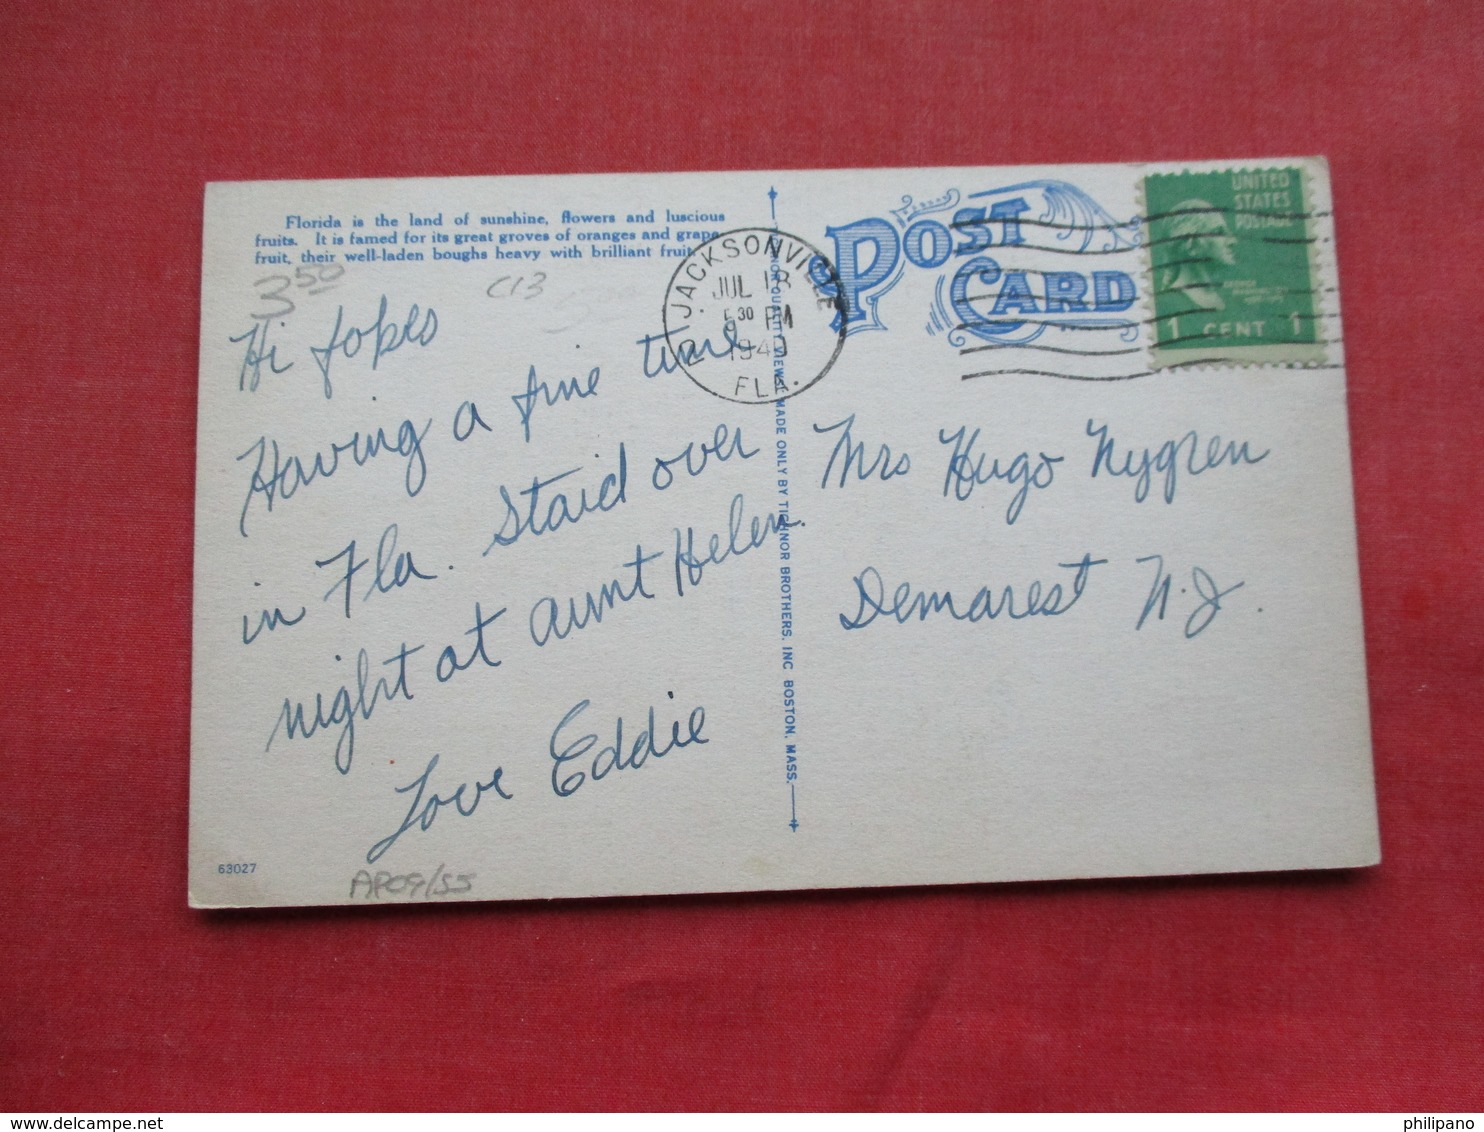 Florida is the land of sunshine, flowers and luscious
fruits. It is famed for its great groves of oranges and grape
fruit, their well-laden boughs heavy with brilliant fruit
3.50
C13
Hi fokes
Having a fine time
in Fla. Staid over
night at aunt Helen.
Love Eddie
63027
AP09/155
QUALITY VIEWS MADE ONLY BY TICHNOR BROTHERS, INC BOSTON, MASS.
JACKSONVILLE
JUL 18
5 30 PM
1940
FLA.
POST
CARD
UNITED
STATES
POSTAGE
1 CENT 1
Mrs Hugo Nygren
Demarest N.J.
www.delcampe.net
philipano